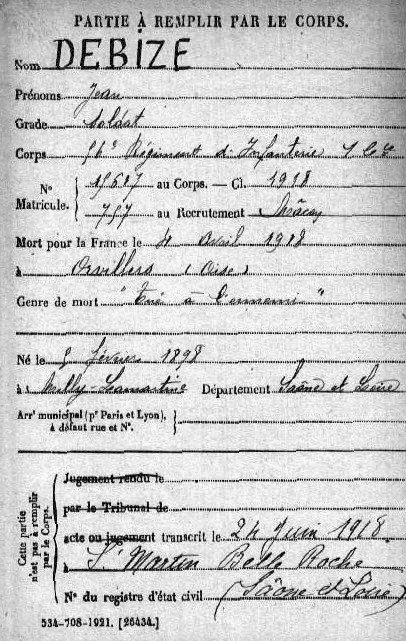 PARTIE À REMPLIR PAR LE CORPS.
Nom DEBIZE
Prénoms Jean
Grade Soldat
Corps 56e Régiment d'Infanterie 1 Cie
N° Matricule. 15617 au Corps. — Cl. 1918
757 au Recrutement Mâcon
Mort pour la France le 4 Avril 1918
à Orvillers (Oise)
Genre de mort "Tué à l'ennemi"
Né le février 1898
à Milly-Lamartine Département Saône et Loire
Arrt municipal (pr Paris et Lyon), à défaut rue et N°.
Cette partie n'est pas à remplir par le Corps.
Jugement rendu le
par le Tribunal de
acte ou jugement transcrit le 24 Juin 1918
à St Martin Belle Roche
N° du registre d'état civil (Saône et Loire)
534-708-1921. [26434.]